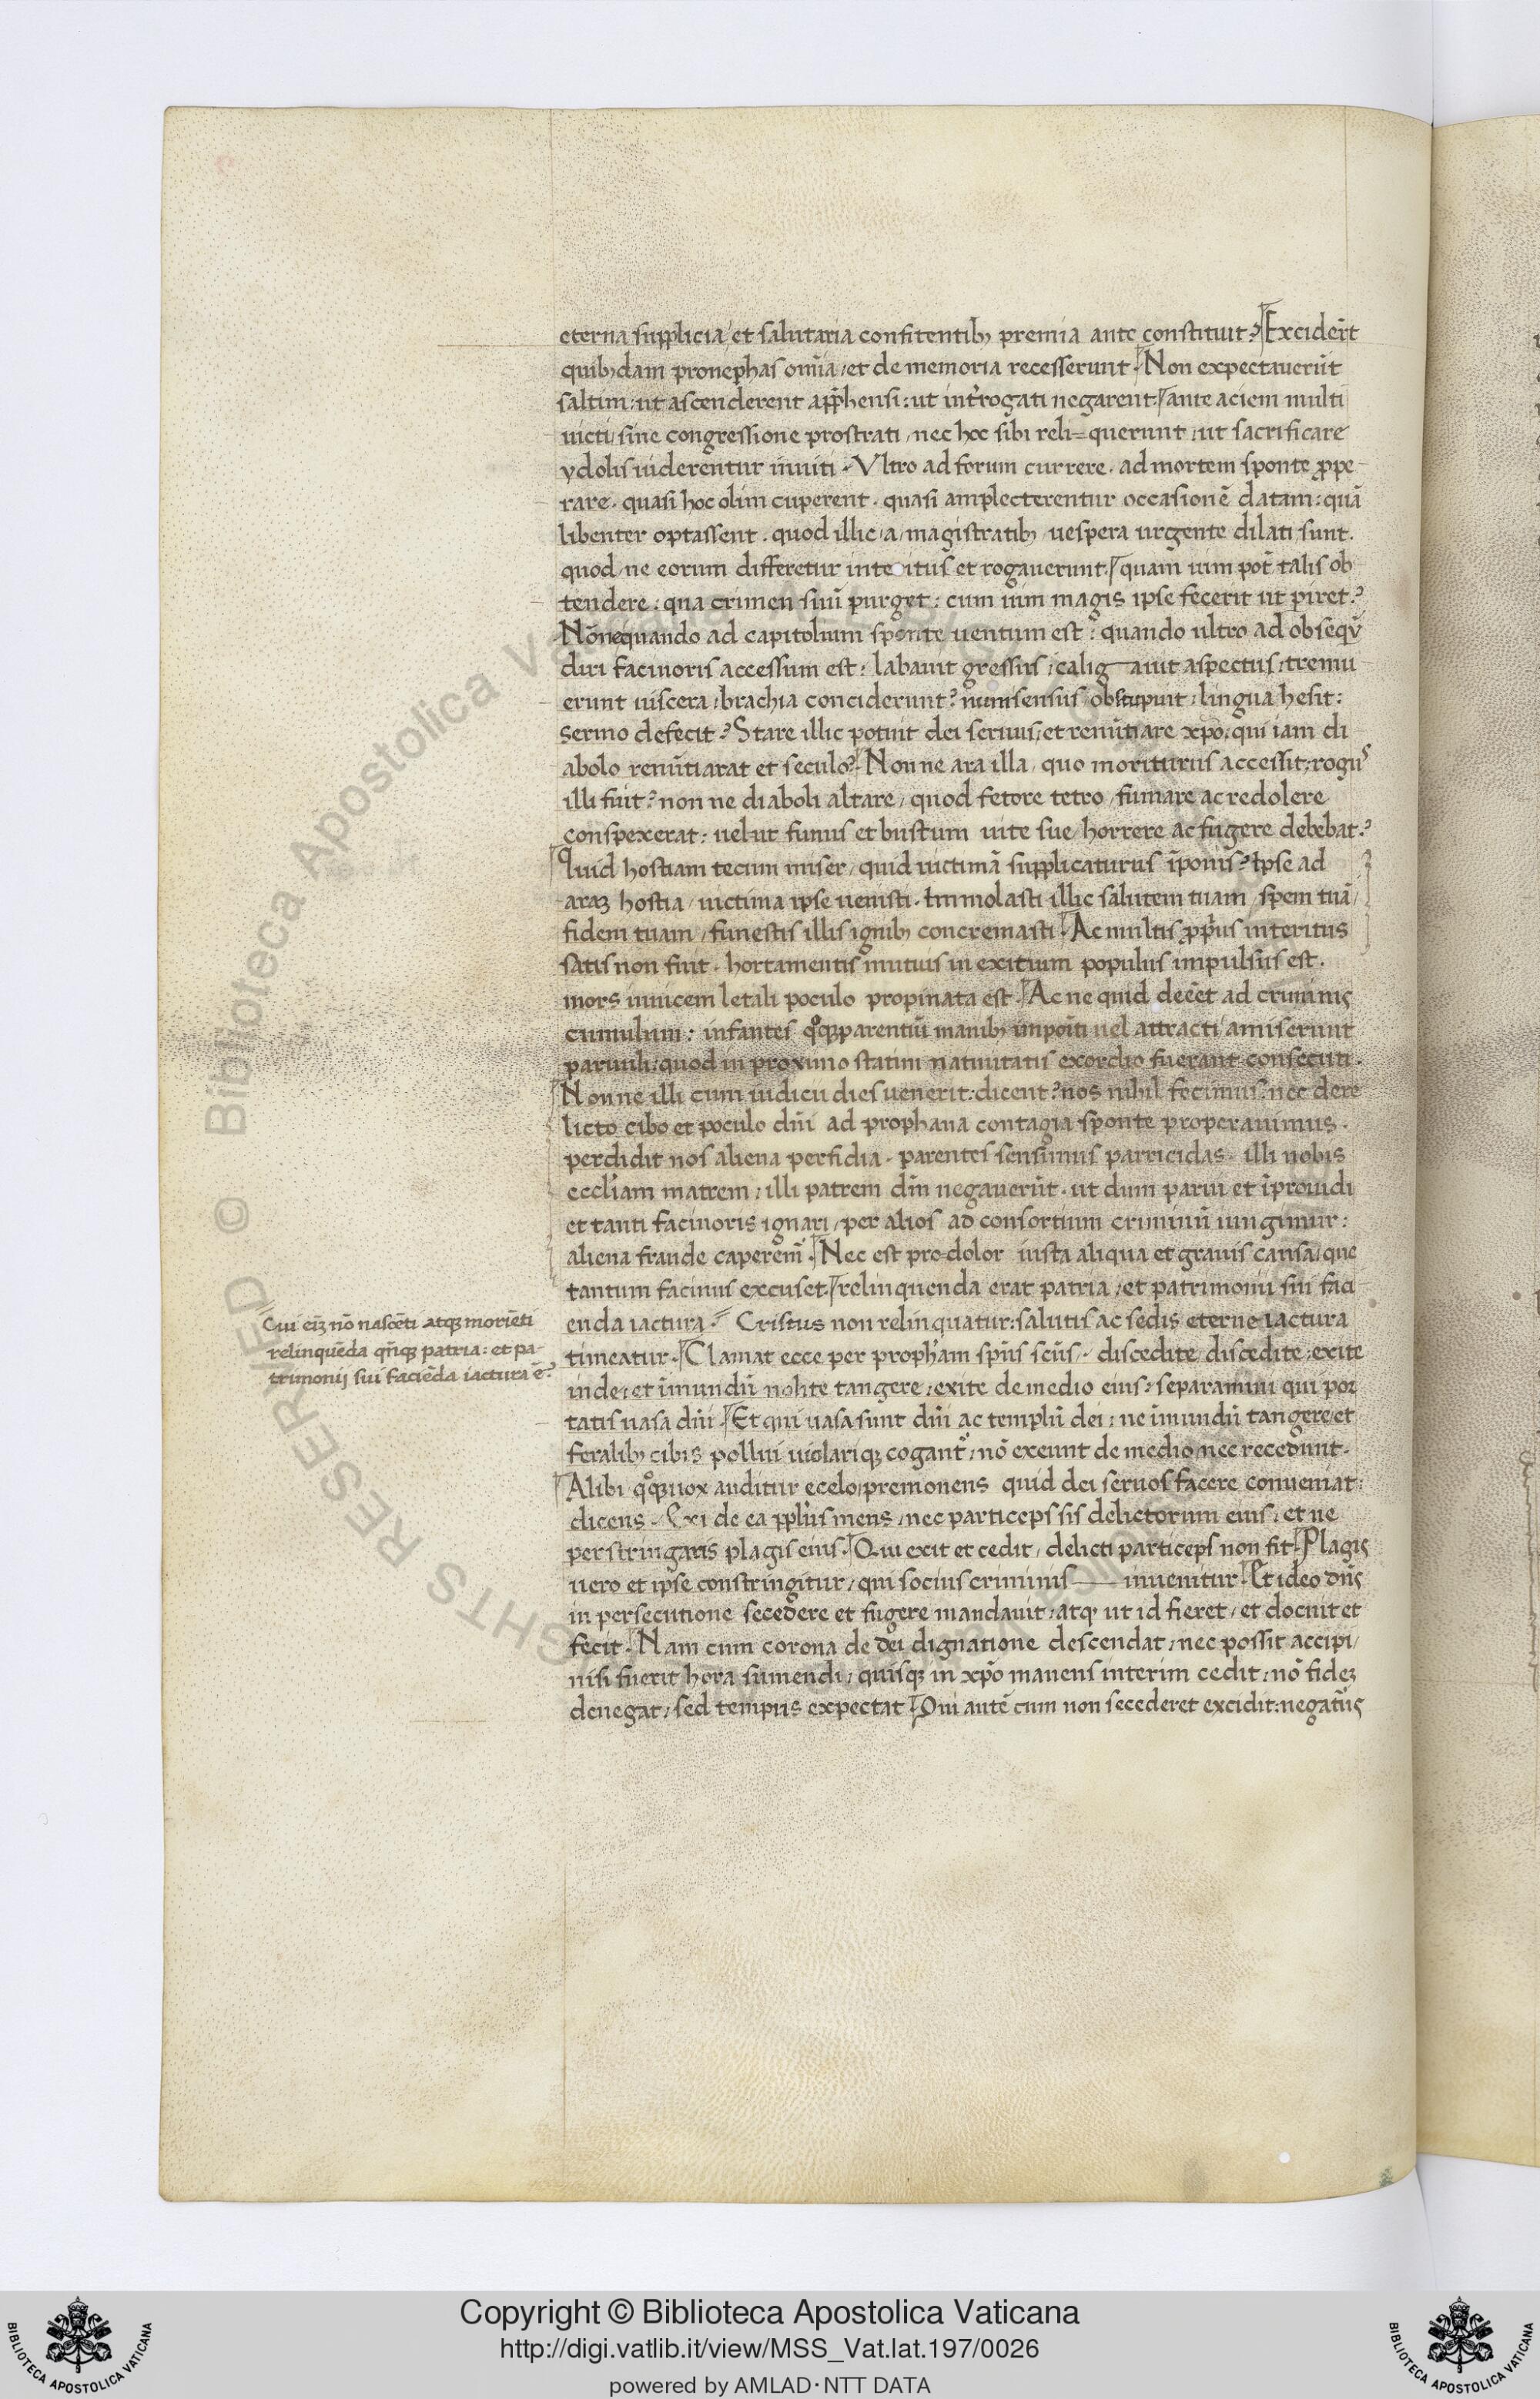 eterna supplicia, et salutaria confitentibꝫ premia ante constituit? Exciderūt
quibꝫdam pronephas om̄ia, et de memoria recesserunt. Non expectauerūt
saltim: ut ascenderent app̄hensi: ut int̄rogati negarent. ante aciem multi
uicti, sine congressione prostrati, nec hoc sibi reli=querunt, ut sacrificare
ydolis uiderentur inuiti. Vltro ad forum currere. ad mortem sponte ꝓpe
rare. quasi hoc olim cuperent. quasi amplecterentur occasionē datam: quā
libenter optassent. quod illic, a, magistratibꝫ uespera urgente dilati sunt.
quod, ne eorum differetur interitus et rogauerunt. quam uim pot̄ talis ob
tendere: qua crimen suū purget: cum uim magis ipse fecerit ut ꝑiret?
Nōnequando ad capitolium sponte uentum est: quando ultro ad obseqū
diri facinoris accessum est: labauit gressus, caligauit aspectus, tremu
erunt uiscera, brachia conciderunt? num sensus obstupuit, lingua hesit:
sermo defecit? Stare illic potuit dei seruus, et renūtiare xp̄o, qui iam di
abolo renūtiarat et seculo? Non ne ara illa, quo moriturus accessit, rogus
illi fuit? non ne diaboli altare, quod fetore tetro, fumare ac redolere
conspexerat: uelut funus et bustum uite sue, horrere ac fugere debebat?
Quid hostiam tecum miser, quid uictimā supplicaturus īponis? Ipse ad
araꝫ hostia, uictima ipse uenisti. Immolasti illic salutem tuam, spem tuā,
fidem tuam, funestis illis ignibꝫ concremasti. Ac multis ꝓpus interitus
satis non fuit. hortamentis mutuis in exitium populus impulsus est.
mors inuicem letali poculo propinata est. Ac ne quid deēt ad criminis
cumulum: infantes qͦqꝫ parentiū manibꝫ impoīti uel attracti amiserunt
paruuli: quod in proximo statim natiuitatis exordio fuerant consecuti.
Non ne illi cum iudicii dies uenerit: dicent? nos nihil fecimus: nec dere
licto cibo et poculo dn̄i ad prophana contagia sponte properauimus.
perdidit nos aliena perfidia. parentes sensimus parricidas. illi nobis
eccl̄iam matrem, illi patrem dn̄m negauerūt. ut dum parui et īprouidi
et tanti facinoris ignari, per alios ad consortium criminū iungimur:
aliena fraude caperem̄. Nec est pro-dolor iusta aliqua et grauis causa, que
tantum facinus excuset. relinquenda erat patria, et patrimonii sui faci
enda iactura. Cristus non relinquatur: salutis ac sedis eterne iactura
timeatur. Clamat ecce per proph̄am spūs scūs. discedite, discedite, exite
inde, et īmundū nolite tangere, exite de medio eius, separamini qui por
tatis uasa dn̄i. Et qui uasa sunt dn̄i ac templū dei: ne īmundū tangere, et
feralibꝫ cibis pollui uiolariqꝫ cogant̄, nō exeunt de medio nec recedunt.
Alibi qͦqꝫ uox auditur ecelo, premonens quid dei seruos facere conueniat:
dicens. Exi de ea pplūs meus, nec particeps sis delictorum eius, et ne
perstringaris plagis eius. Qui exit et cedit, delicti particeps non fit. Plagis
uero et ipse constringitur, qui socius criminis inuenitur. Et ideo dn̄s
in persecutione secedere et fugere mandauit, atqꝫ ut id fieret, et docuit et
fecit. Nam cum corona de dei dignatione descendat, nec possit accipi,
nisi fuerit hora sumendi, quisqꝫ in xp̄o manens interim cedit, nō fideꝫ
denegat, sed tempus expectat. Qui autē cum non secederet excidit: negatūs
Cui eīꝫ nō nascēti atqꝫ moriēti
relinquēda qn̄qꝫ patria: et pa-
trimonij sui faciēda iactura ē?
Copyright © Biblioteca Apostolica Vaticana
http://digi.vatlib.it/view/MSS_Vat.lat.197/0026
powered by AMLAD·NTT DATA
BIBLIOTECA APOSTOLICA VATICANA
BIBLIOTECA APOSTOLICA VATICANA